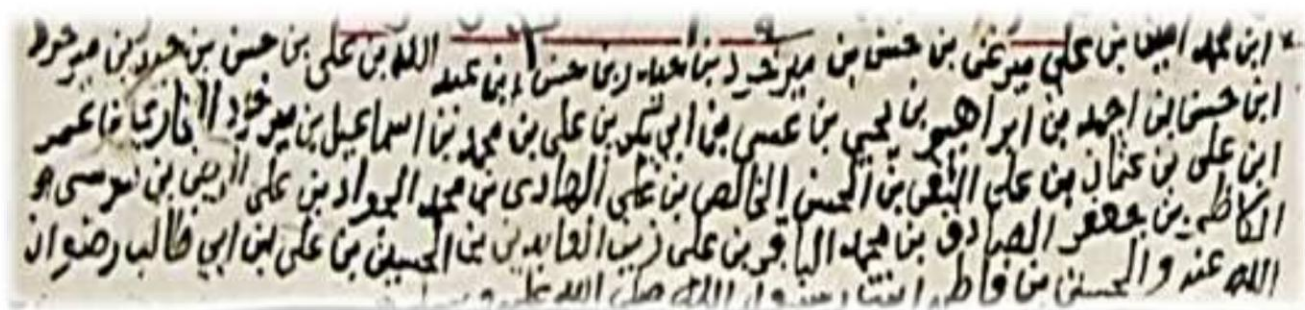 ابن محمد امين بن علي ميرغني بن حسن بن مير خرد بن حيدر بن حسن ابن عبد الله بن علي بن حسن بن حيدر بن مير خرد
ابن حسن بن احمد بن ابراهيم بن يحيي بن عيسى بن ابي بكر بن علي بن محمد بن اسماعيل بن مير خرد البخاري بن عمر
ابن علي بن عثمان بن علي التقي بن الحسن الخالص بن علي الهادي بن محمد الجواد بن علي الرضى بن موسى
الكاظم بن جعفر الصادق بن محمد الباقر بن علي زين العابدين بن الحسين بن علي بن ابي طالب رضوان
الله عنه والحسين بن فاطمة بنت رسول الله صلى الله عليه وسلم